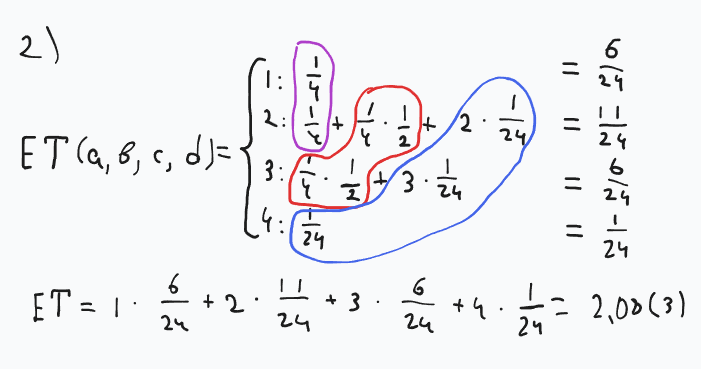 2)
1: 1/4 = 6/24
2: 1/4 + 1/4 · 1/2 + 2 · 1/24 = 11/24
ET(a, b, c, d) = {
3: 1/4 · 1/2 + 3 · 1/24 = 6/24
4: 1/24 = 1/24
ET = 1 · 6/24 + 2 · 11/24 + 3 · 6/24 + 4 · 1/24 = 2,08(3)